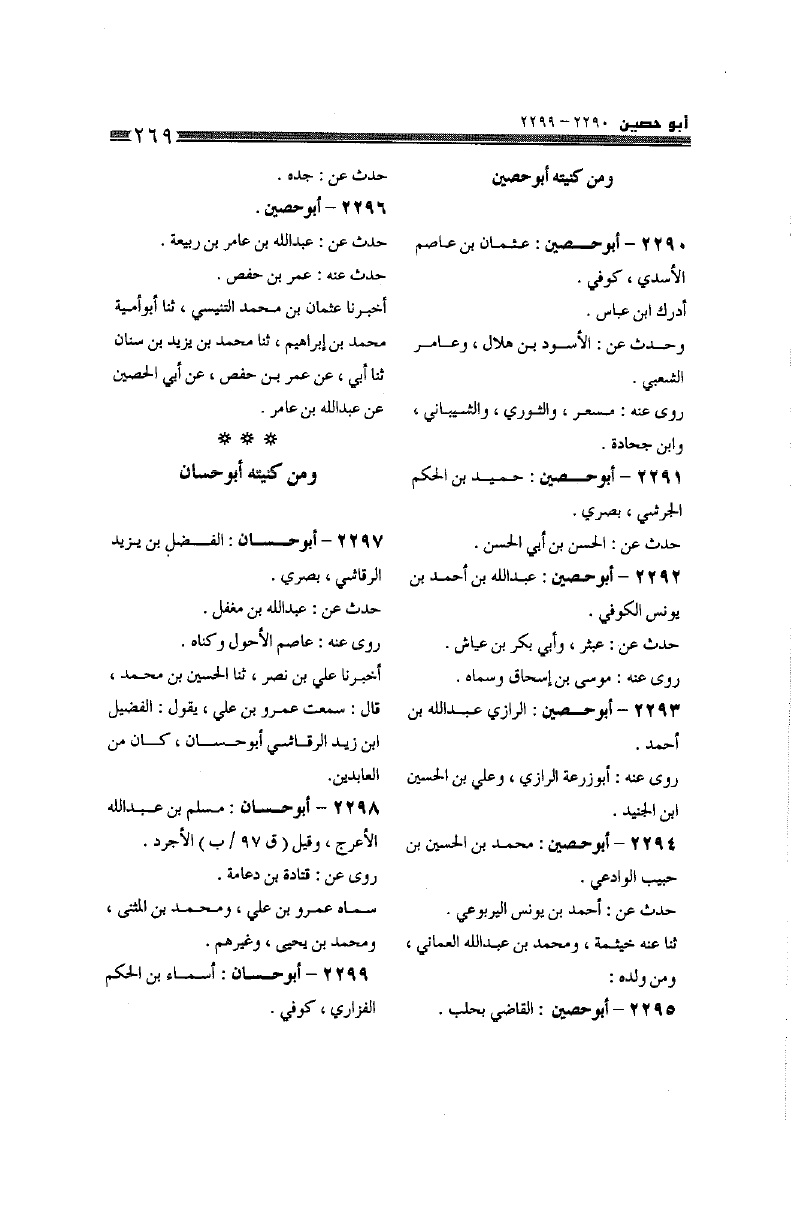 أبو حصين ٢٢٩٠ - ٢٢٩٩
٢٦٩
ومن كنيته أبوحصين
٢٢٩٠ - أبوحصين : عثمان بن عاصم
الأسدي ، كوفي .
أدرك ابن عباس .
وحدث عن : الأسود بن هلال ، وعامر
الشعبي .
روى عنه : مسعر ، والثوري ، والشيباني ،
وابن جحادة .
٢٢٩١ - أبوحصين : حميد بن الحكم
الجرشي ، بصري .
حدث عن : الحسن بن أبي الحسن .
٢٢٩٢ - أبوحصين : عبدالله بن أحمد بن
يونس الكوفي .
حدث عن : عبثر ، وأبي بكر بن عياش .
روى عنه : موسى بن إسحاق وسماه .
٢٢٩٣ - أبوحصين : الرازي عبدالله بن
أحمد .
روى عنه : أبوزرعة الرازي ، وعلي بن الحسين
ابن الجنيد .
٢٢٩٤ - أبوحصين : محمد بن الحسين بن
حبيب الوادعي .
حدث عن : أحمد بن يونس اليربوعي .
ثنا عنه خيثمة ، ومحمد بن عبدالله العماني ،
ومن ولده :
٢٢٩٥ - أبوحصين : القاضي بحلب .
حدث عن : جده .
٢٢٩٦ - أبوحصين .
حدث عن : عبدالله بن عامر بن ربيعة .
حدث عنه : عمر بن حفص .
أخبرنا عثمان بن محمد التنيسي ، ثنا أبوأمية
محمد بن إبراهيم ، ثنا محمد بن يزيد بن سنان
ثنا أبي ، عن عمر بن حفص ، عن أبي الحصين
عن عبدالله بن عامر .
* * *
ومن كنيته أبوحسان
٢٢٩٧ - أبوحسان : الفضل بن يزيد
الرقاشي ، بصري .
حدث عن : عبدالله بن مغفل .
روى عنه : عاصم الأحول وكناه .
أخبرنا علي بن نصر ، ثنا الحسين بن محمد ،
قال : سمعت عمرو بن علي ، يقول : الفضيل
ابن زيد الرقاشي أبوحسان ، كان من
العابدين.
٢٢٩٨ - أبوحسان : مسلم بن عبدالله
الأعرج ، وقيل ( ق ٩٧ / ب ) الأجرد .
روى عن : قتادة بن دعامة .
سماه عمرو بن علي ، ومحمد بن المثنى ،
ومحمد بن يحيى ، وغيرهم .
٢٢٩٩ - أبوحسان : أسماء بن الحكم
الفزاري ، كوفي .